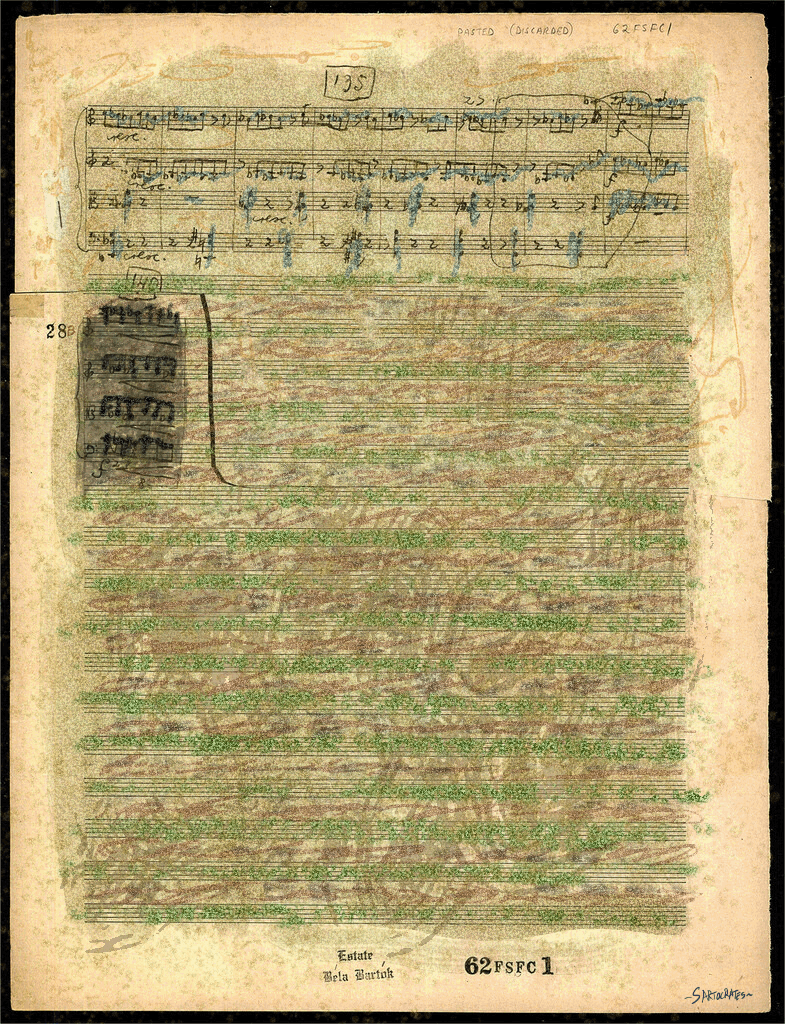 PASTED (DISCARDED) 62FSFC1
135
cresc.
cresc.
cresc.
cresc.
f
f
f
140
28
f
Estate
Bela Bartók
62FSFC1
~SARTOCRATES~